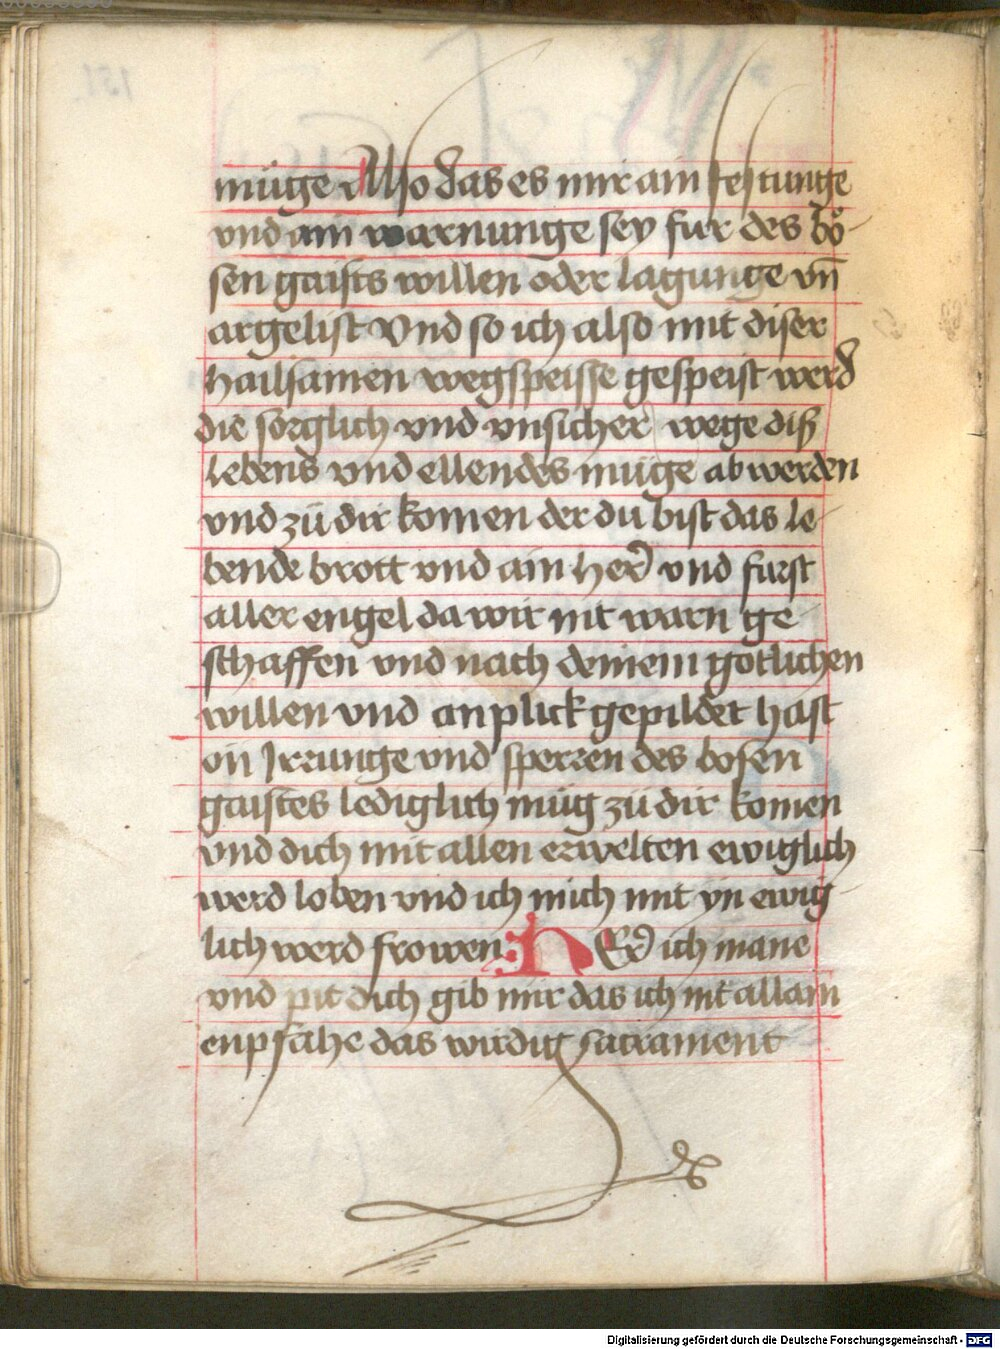 müge Also das es mir ain festunge
vnd ain warnunge sey fur des bö-
sen gaists willen oder lagunge vn̄
argelist Vnd so ich also mit diser
hailsamen wegspeisse gespeist werd
die sorglich vnd vnsicher wege diß
lebens vnd ellendes müge ab werden
vnd zü dir komen der du bist das le-
bende brott vnd ain her vnd furst
aller engel da wir nit warn ge-
schaffen vnd nach deinem gotlichen
willen vnd anplick gepildet hast
on Irrunge vnd sperren des bosen
gaistes lediglich müg zü dir komen
vnd dich mit allen erwelten ewiglich
werd loben vnd ich mich mit yn ewig-
lich werd frowen HEr ich mane
vnd pit dich gib mir das ich nit allain
enpfahe das wirdig sacrament
Digitalisierung gefördert durch die Deutsche Forschungsgemeinschaft - DFG